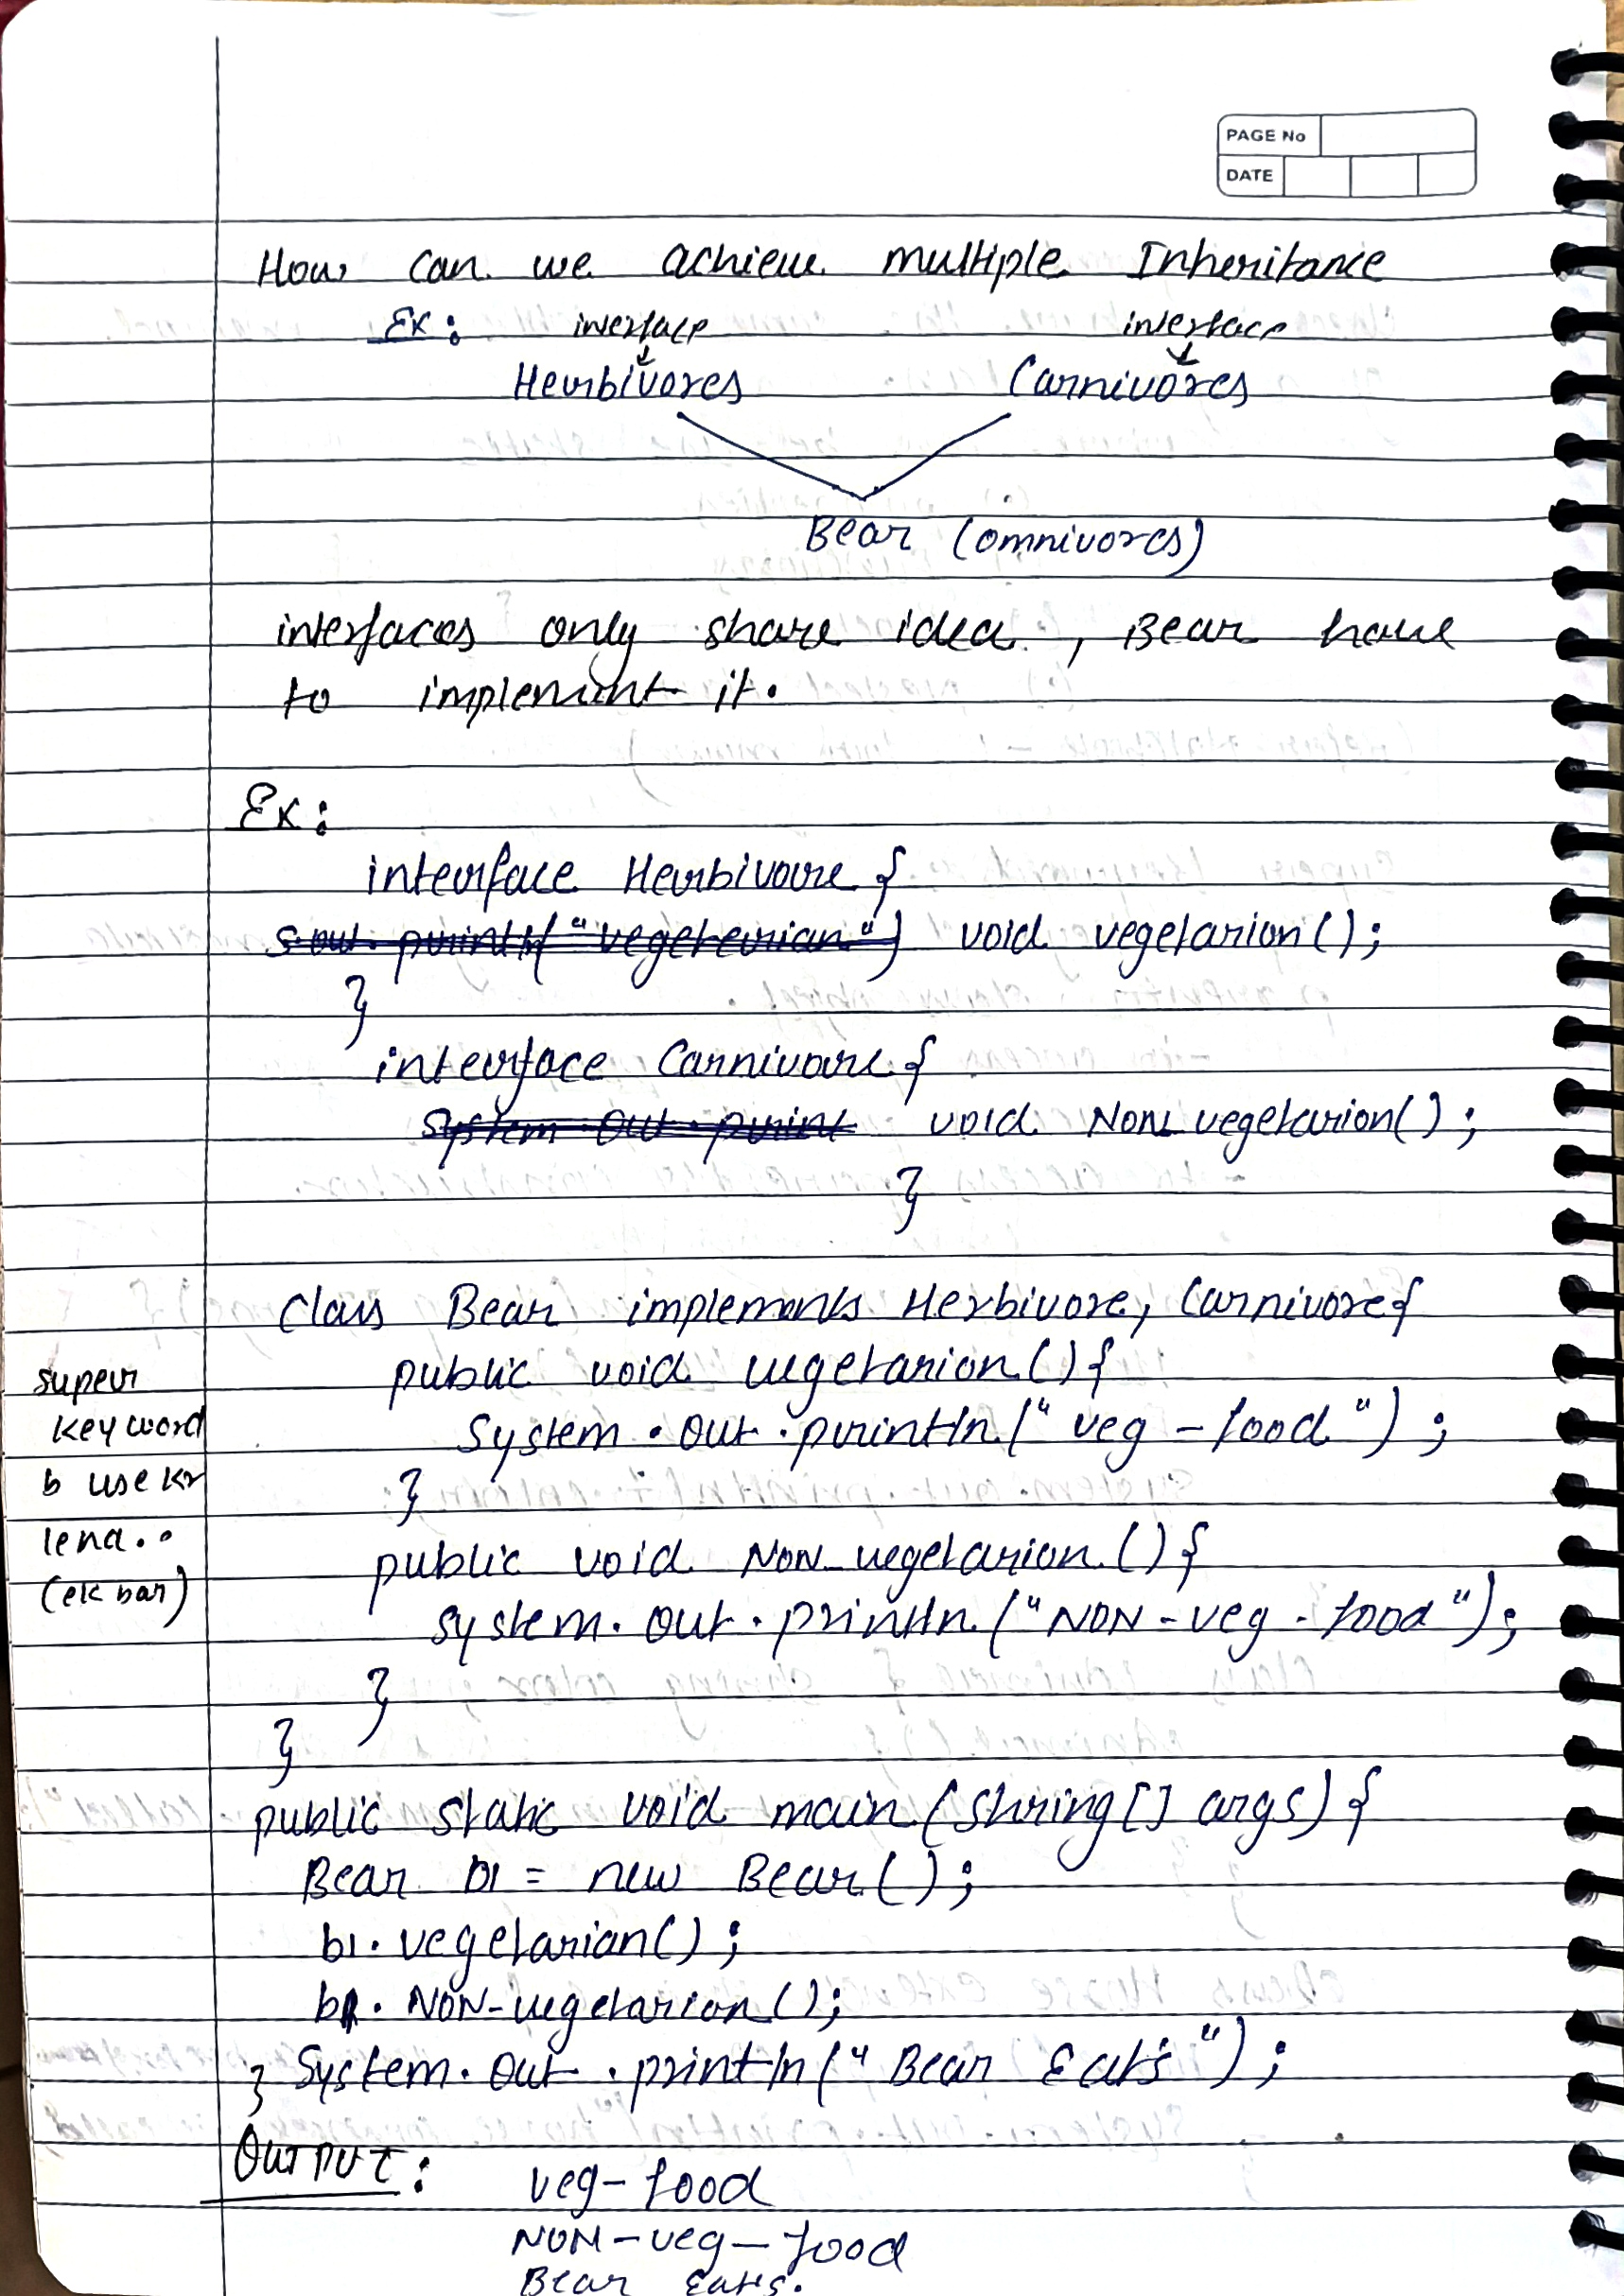 PAGE No
DATE
How can we achieve multiple Inheritance
Ex: interface interface
Herbivores Carnivores
Bear (omnivores)
interfaces only share idea, Bear have
to implement it.
Ex:
interface Herbivore {
s.out.println("vegeterian") void vegetarion();
}
interface Carnivore {
System.out.print void Non_vegetarion();
}
Class Bear implements Herbivore, Carnivore{
public void vegetarion(){
System.out.println("veg-food");
}
public void Non_vegetarion(){
system.out.println("NON-veg-food");
}
}
super
keyword
b use kr
lena..
(ek bar)
public static void main(string[] args){
Bear b1 = new Bear();
b1.vegetarian();
b1.NON-vegetarion();
} System.out.println("Bear Eats");
OUTPUT:
veg-food
NON-veg-food
Bear Eats.